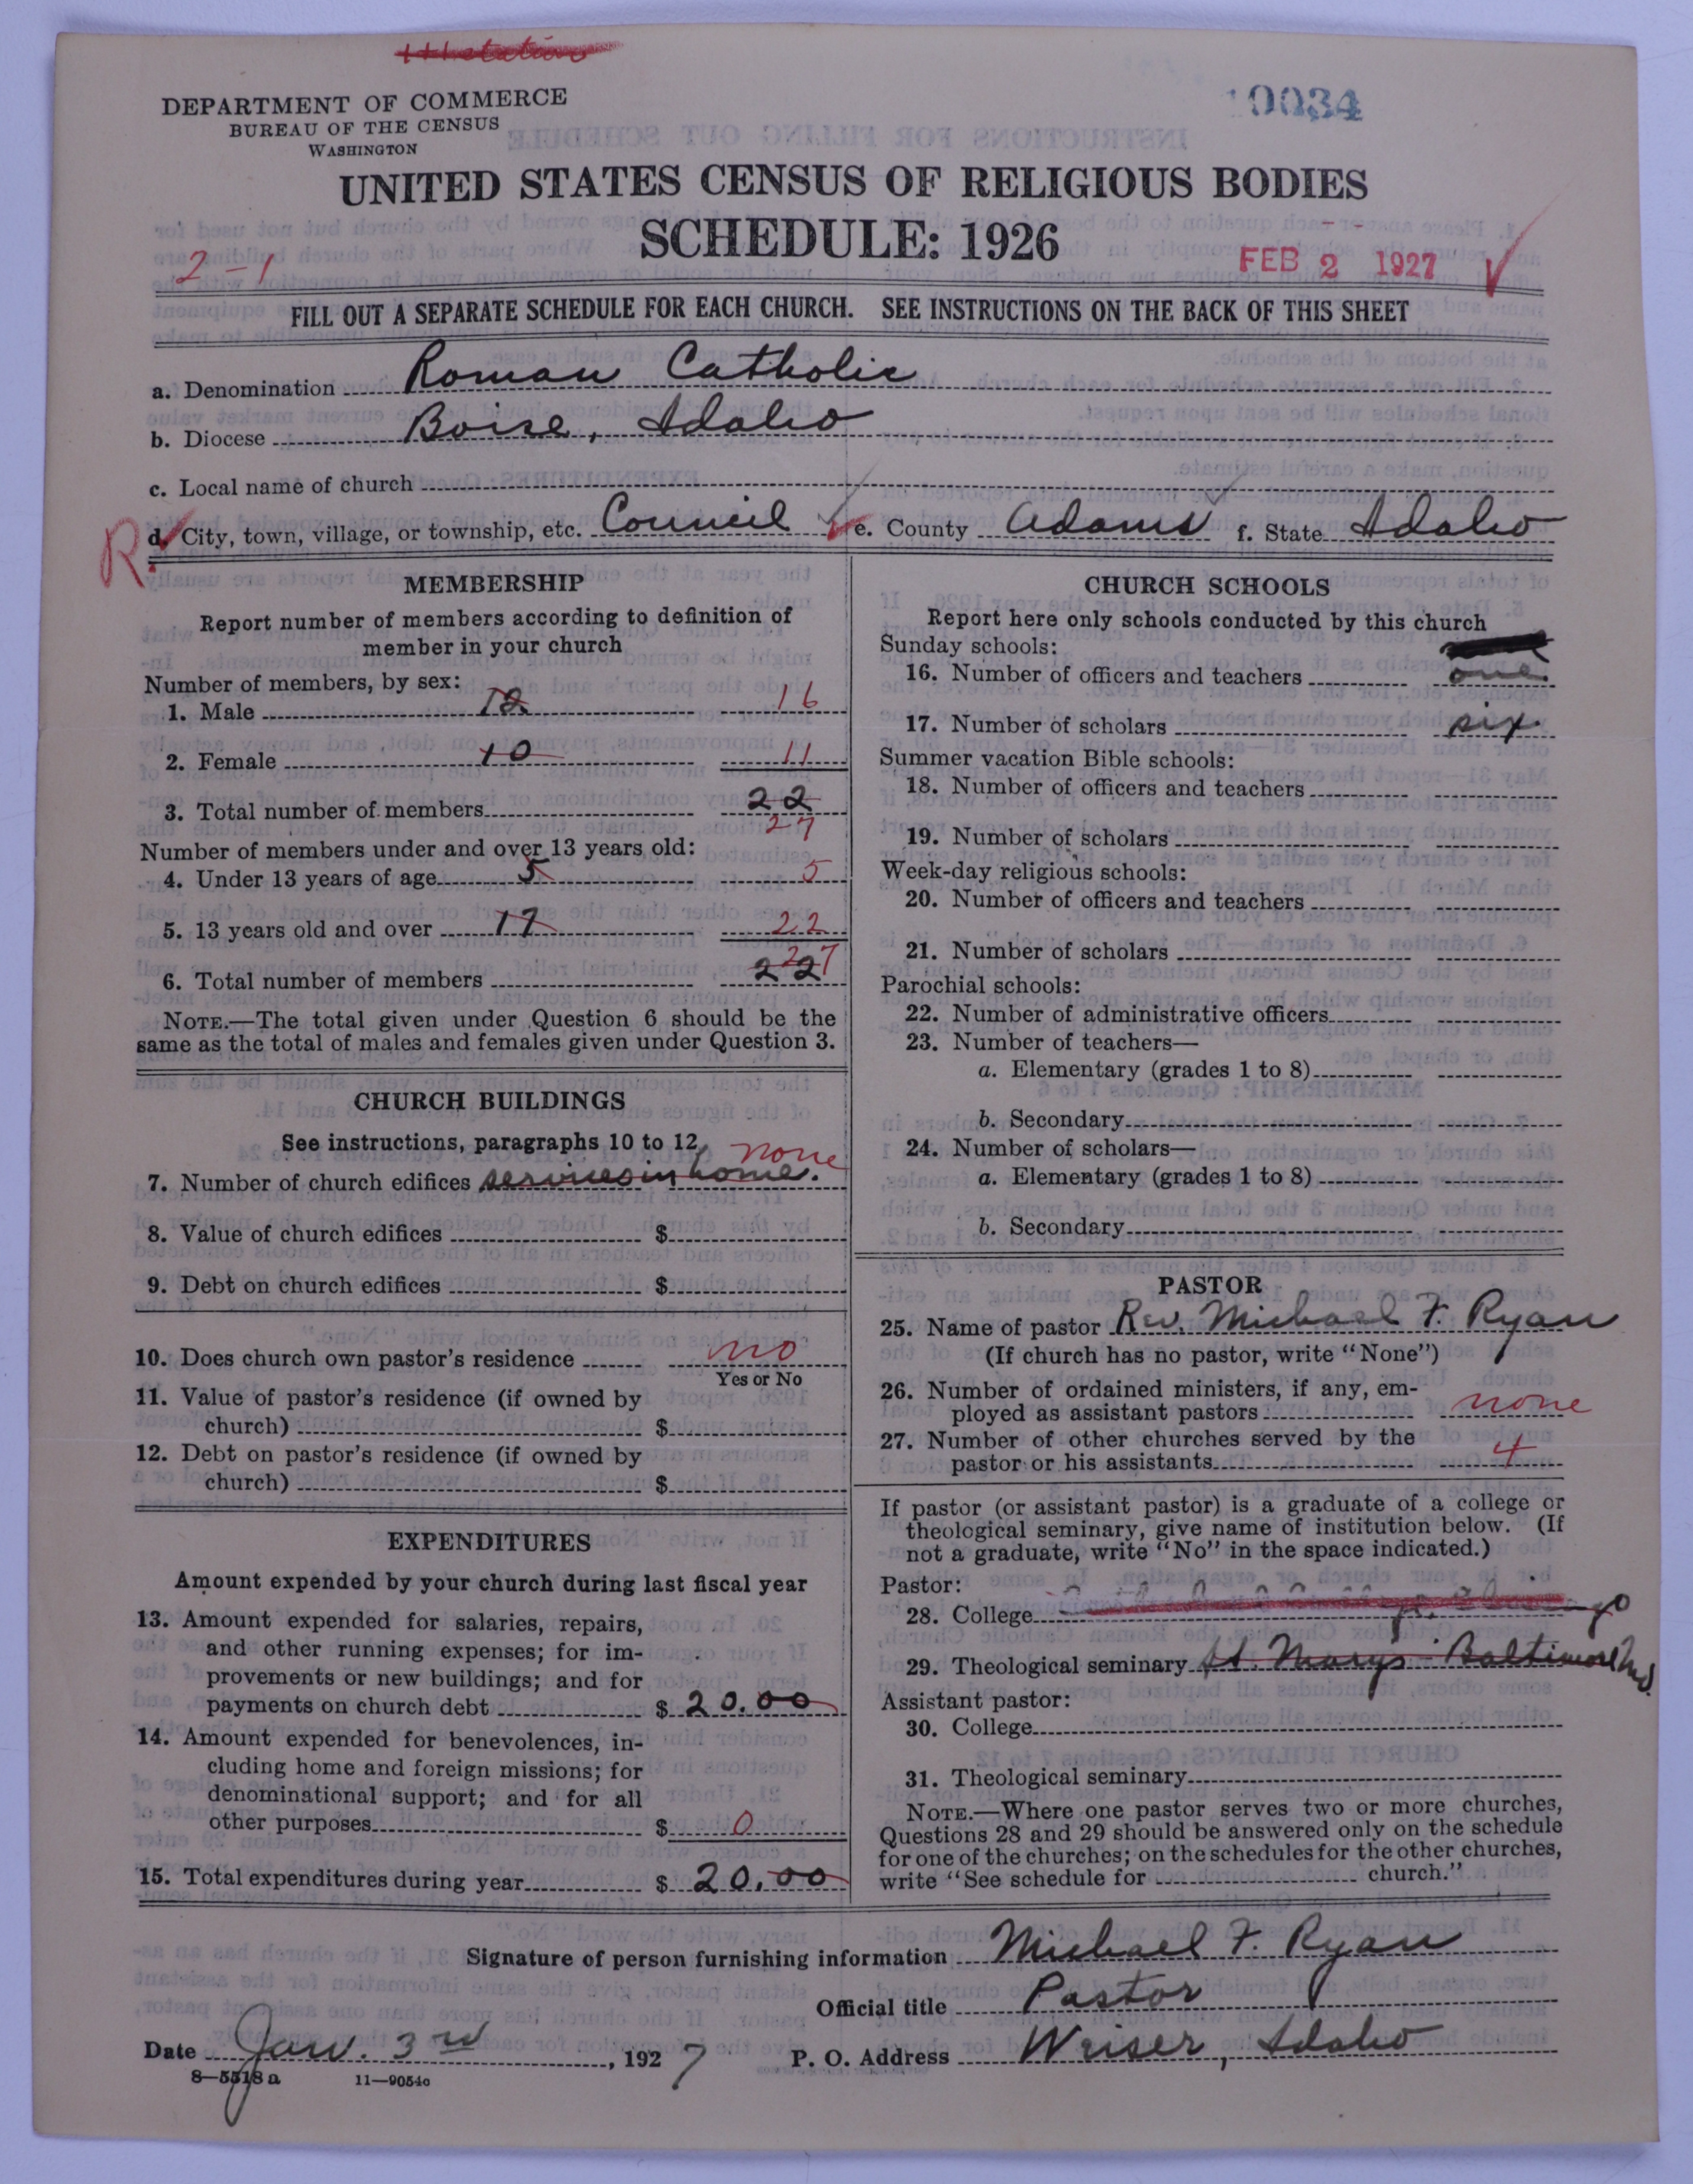 DEPARTMENT OF COMMERCE
BUREAU OF THE CENSUS
WASHINGTON
0034
UNITED STATES CENSUS OF RELIGIOUS BODIES
SCHEDULE: 1926
2-1
FEB 2 1927
FILL OUT A SEPARATE SCHEDULE FOR EACH CHURCH. SEE INSTRUCTIONS ON THE BACK OF THIS SHEET
a. Denomination Roman Catholic
b. Diocese Boise, Idaho
c. Local name of church
R. d. City, town, village, or township, etc. Council e. County Adams f. State Idaho
MEMBERSHIP
Report number of members according to definition of
member in your church
Number of members, by sex:
1. Male 12 16
2. Female 10 11
3. Total number of members 22
27
Number of members under and over 13 years old:
4. Under 13 years of age 5 5
5. 13 years old and over 17 22
27
6. Total number of members 22
NOTE.—The total given under Question 6 should be the
same as the total of males and females given under Question 3.
CHURCH BUILDINGS
See instructions, paragraphs 10 to 12
none
7. Number of church edifices services in home.
8. Value of church edifices $
9. Debt on church edifices $
10. Does church own pastor's residence no
Yes or No
11. Value of pastor's residence (if owned by
church) $
12. Debt on pastor's residence (if owned by
church) $
EXPENDITURES
Amount expended by your church during last fiscal year
13. Amount expended for salaries, repairs,
and other running expenses; for im-
provements or new buildings; and for
payments on church debt $ 20.00
14. Amount expended for benevolences, in-
cluding home and foreign missions; for
denominational support; and for all
other purposes $ 0
15. Total expenditures during year $ 20.00
CHURCH SCHOOLS
Report here only schools conducted by this church
Sunday schools:
16. Number of officers and teachers one
17. Number of scholars six.
Summer vacation Bible schools:
18. Number of officers and teachers
19. Number of scholars
Week-day religious schools:
20. Number of officers and teachers
21. Number of scholars
Parochial schools:
22. Number of administrative officers
23. Number of teachers—
a. Elementary (grades 1 to 8)
b. Secondary
24. Number of scholars—
a. Elementary (grades 1 to 8)
b. Secondary
PASTOR
25. Name of pastor Rev. Michael F. Ryan
(If church has no pastor, write "None")
26. Number of ordained ministers, if any, em-
ployed as assistant pastors none
27. Number of other churches served by the
pastor or his assistants 4
If pastor (or assistant pastor) is a graduate of a college or
theological seminary, give name of institution below. (If
not a graduate, write "No" in the space indicated.)
Pastor:
28. College
29. Theological seminary St. Mary's Baltimore Md.
Assistant pastor:
30. College
31. Theological seminary
NOTE.—Where one pastor serves two or more churches,
Questions 28 and 29 should be answered only on the schedule
for one of the churches; on the schedules for the other churches,
write "See schedule for church."
Signature of person furnishing information Michael F. Ryan
Official title Pastor
Date Jan. 3rd, 1927 P. O. Address Weiser, Idaho
8—5518 a 11—9054c